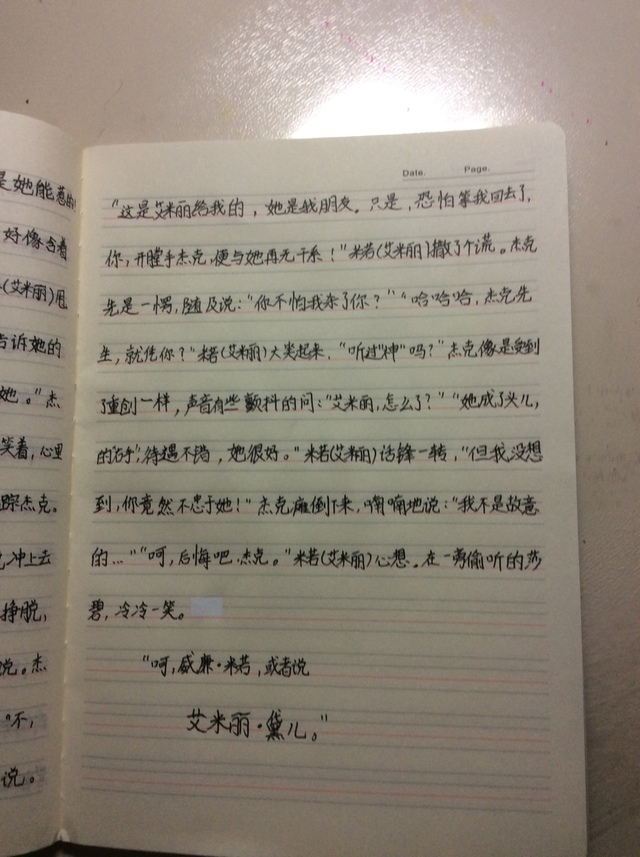 是她能惹的
好像含着
(艾米丽)甩
告诉她的
她。"杰
笑着,心里
踪杰克。
冲上去
挣脱,
说。杰
"不,
说。
Date. Page.
"这是艾米丽给我的,她是我朋友。只是,恐怕等我回去了,
你,开膛手杰克,便与她再无干系!"米若(艾米丽)撒了个谎。杰克
先是一愣,随及说:"你不怕我杀了你?""哈哈哈,杰克先
生,就凭你?"米若(艾米丽)大笑起来,"听过"神"吗?"杰克像是受到
了重创一样,声音有些颤抖的问:"艾米丽,怎么了?""她成了头儿,
的右手,待遇不错,她很好。"米若(艾米丽)话锋一转,"但我没想
到,你竟然不忠于她!"杰克瘫倒下来,喃喃地说:"我不是故意
的…""呵,后悔吧,杰克。"米若(艾米丽)心想。在一旁偷听的莎
碧,冷冷一笑。
"呵,威廉·米若,或者说
艾米丽·黛儿。"